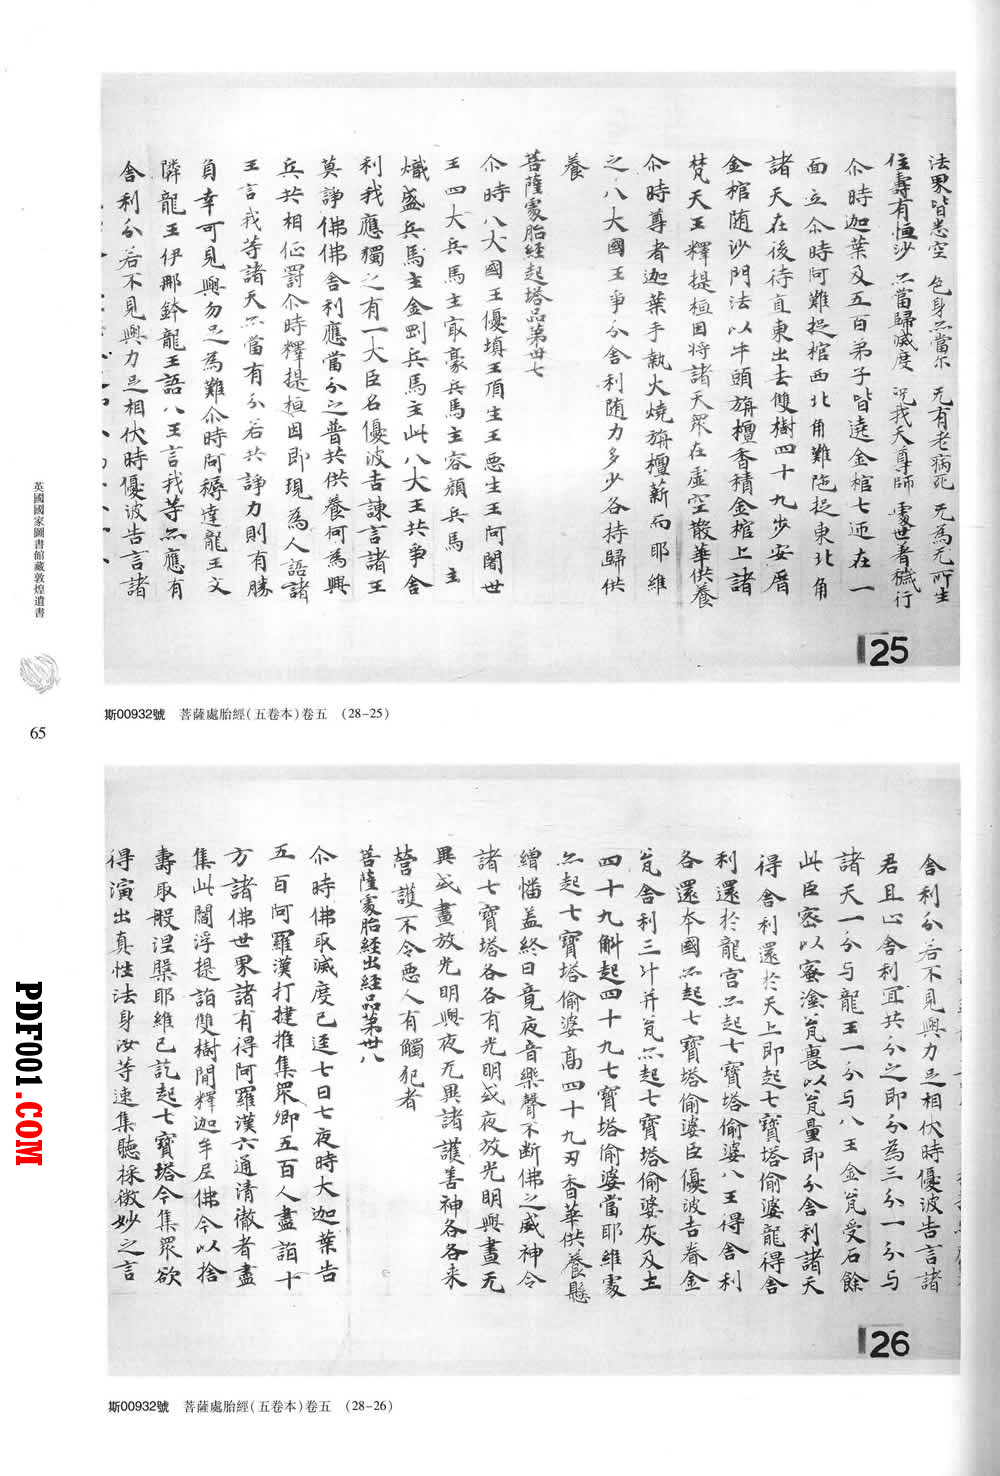 法界皆悉空 色身亦當尔 无有老病死 无為无所生
住壽有恒沙 亦當歸滅度 況我天尊師 處世著穢行
尒時迦葉及五百弟子皆遶金棺七迊在一
面立尒時阿難捉棺西北角難陁捉東北角
諸天在後侍直東出去雙樹四十九步安厝
金棺随沙門法以牛頭旃檀香積金棺上諸
梵天王釋提桓因将諸天眾在虛空散華供養
尒時尊者迦葉手執火燒旃檀薪而耶維
之八大國王爭分舍利随力多少各持歸供
養
菩薩處胎經起塔品第卅七
尒時八大國王優填王頂生王悪生王阿闍世
王四大兵馬主㝡豪兵馬主容顏兵馬主
熾盛兵馬主金剛兵馬主此八大王共爭舍
利我應獨之有一大臣名優波吉諫言諸王
莫諍佛佛舍利應當分之普共供養何為興
兵共相征罸尒時釋提桓因即現為人語諸
王言我等諸天亦當有分若共諍力則有勝
負幸可見與勿足為難尒時阿耨達龍王文
隣龍王伊那鉢龍王語八王言我等亦應有
舍利分若不見與力足相伏時優波吉言諸
25
斯00932號 菩薩處胎經（五卷本）卷五 （28-25）
英國國家圖書館藏敦煌遺書
65
舍利分若不見與力足相伏時優波吉言諸
君且止舍利冝共分之即分為三分一分与
諸天一分与龍王一分与八王金瓮受石餘
此臣密以蜜塗瓮裏以瓮量即分舍利諸天
得舍利還於天上即起七寶塔偷婆龍得舍
利還於龍宮亦起七寶塔偷婆八王得舍利
各還本國亦起七寶塔偷婆臣優波吉眷金
瓮舍利三斗并瓮亦起七寶塔偷婆灰及土
四十九斛起四十九七寶塔偷婆當耶維處
亦起七寶塔偷婆高四十九刃香華供養懸
繒憣盖終日竟夜音樂聲不断佛之威神令
諸七寶塔各各有光明或夜放光明與晝无
異或晝放光明與夜无異諸護善神各各来
營護不令悪人有觸犯者
菩薩處胎經出経品第卅八
尒時佛取滅度已逕七日七夜時大迦葉告
五百阿羅漢打揵推集衆卿五百人盡詣十
方諸佛世界諸有得阿羅漢六通清徹者盡
集此閻浮提詣雙樹間釋迦牟尼佛今以捨
壽取般涅槃耶維已訖起七寶塔今集眾欲
得演出真性法身汝等速集聽採微妙之言
26
斯00932號 菩薩處胎經（五卷本）卷五 （28-26）
PDF001.COM